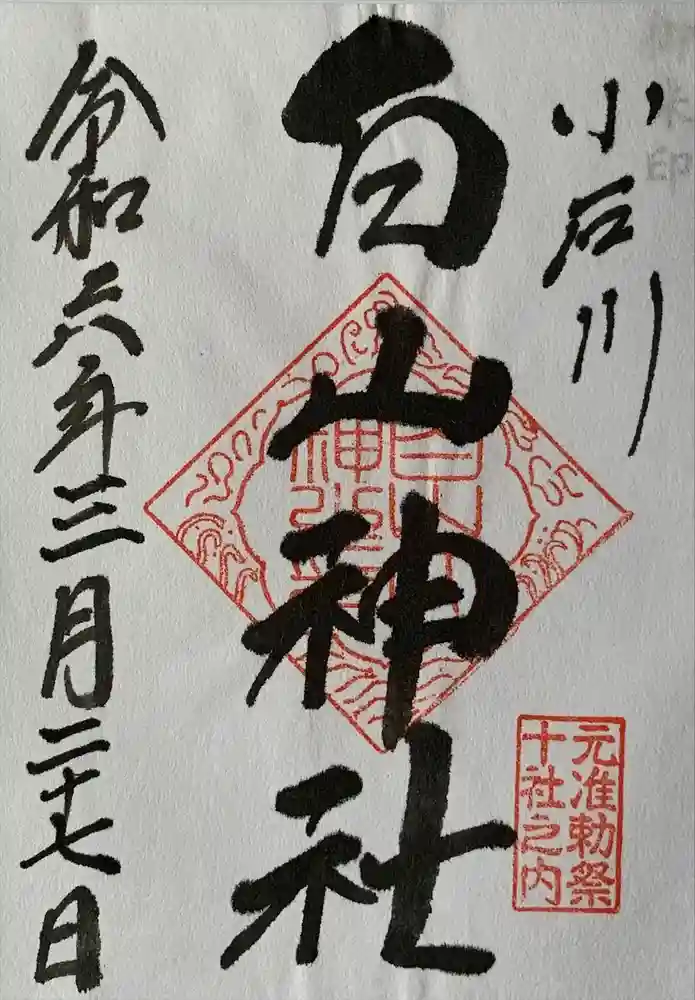 小石川
白山神社
元准勅祭
十社之内
令和六年三月二十七日